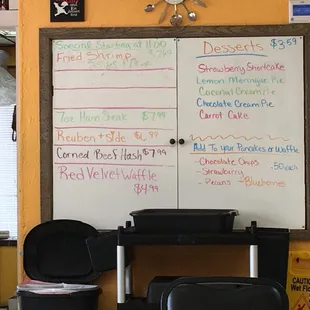 Special Starting at 11:00
Fried Shrimp
7oz Ham Steak $7.99
Reuben + side
Corned Beef Hash $7.99
Red Velvet Waffle
$4.99
Desserts $3.59
Strawberry Shortcake
Lemon Meringue Pie
Coconut Cream Pie
Chocolate Cream Pie
Carrot Cake
Add To your Pancakes or Waffle
- Chocolate Chips .50 each
- Strawberry
- Pecans - Blueberries
CAUTION
Wet Floor